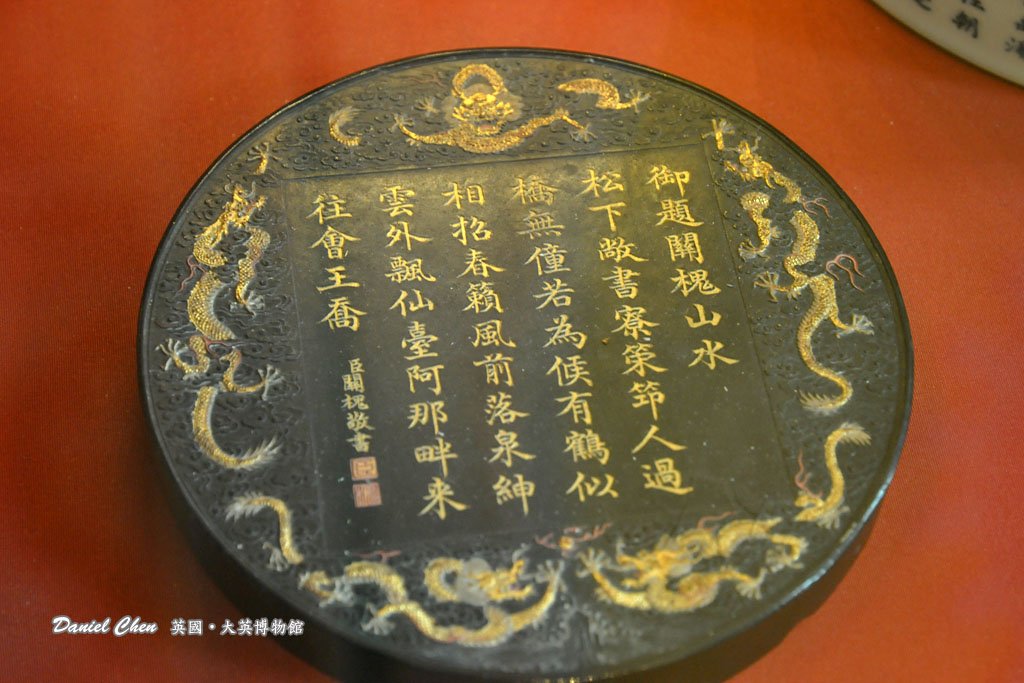 御題關槐山水
松下敞書寮策筇人過
橋無僮若為候有鶴似
相招春籟風前落泉紳
雲外飄仙臺阿那畔来
往會王喬
臣關槐敬書
Daniel Chen 英國・大英博物館